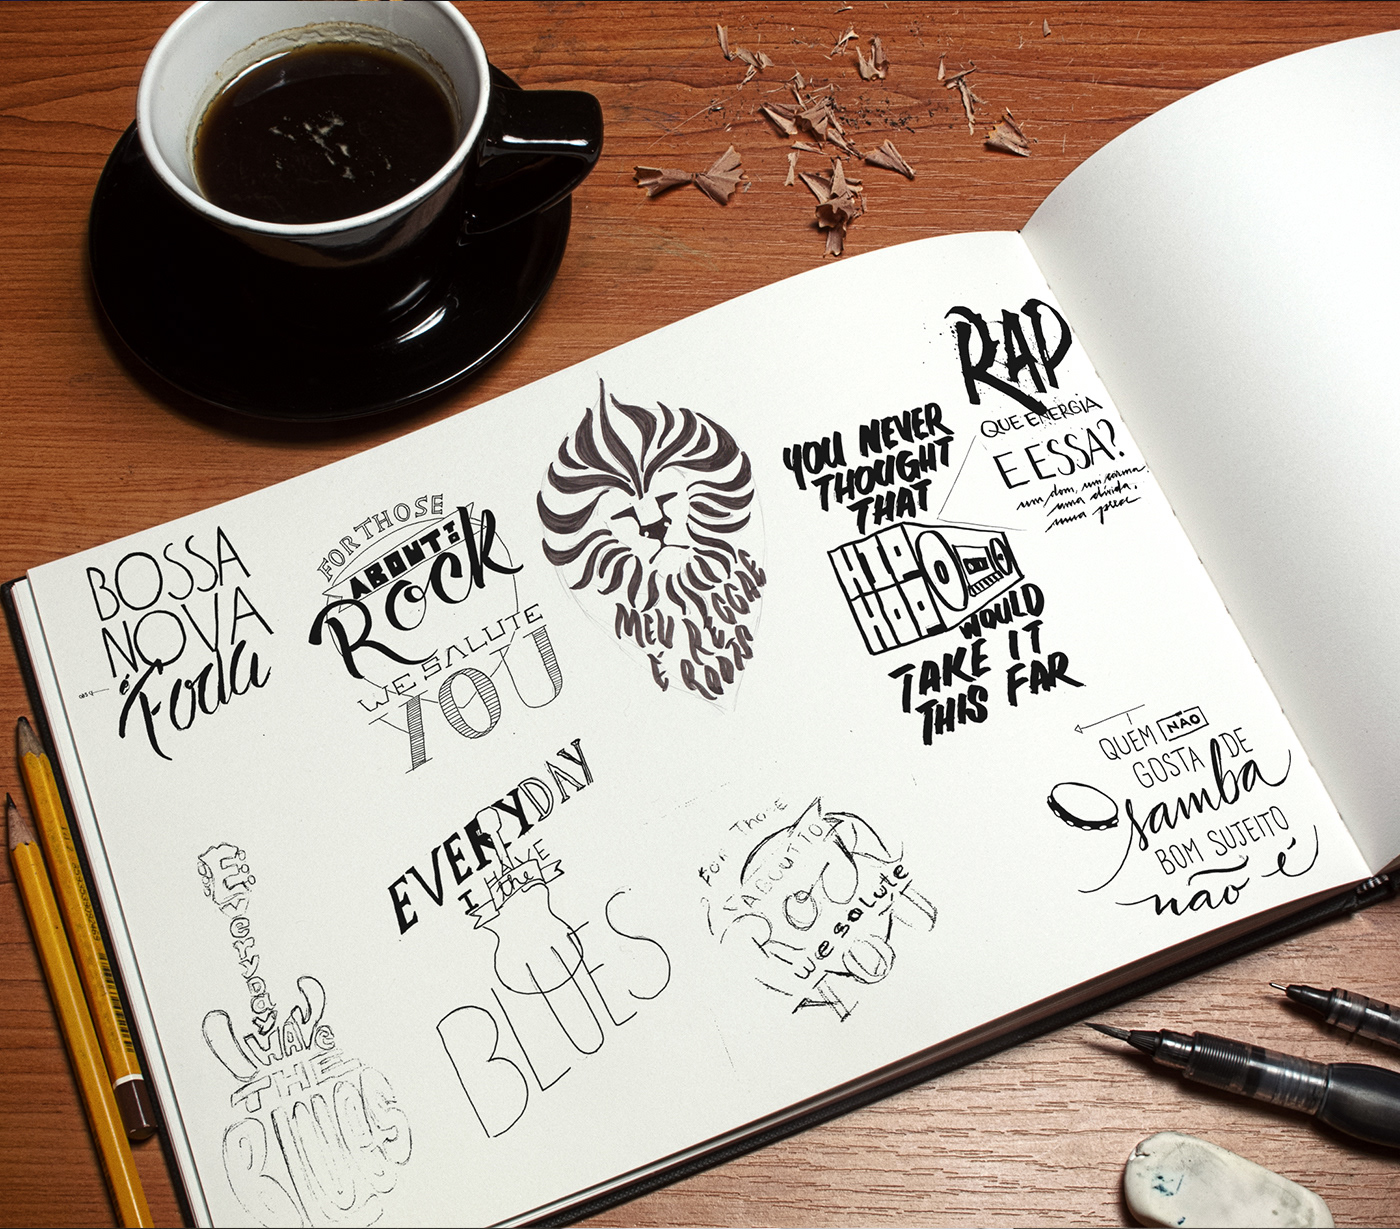 BOSSA
NOVA
é Foda
FOR THOSE
ABOUT TO
ROCK
WE SALUTE
YOU
MEU REGGAE
É ROOTS
YOU NEVER
THOUGHT
THAT
HIP
HOP
WOULD
TAKE IT
THIS FAR
RAP
QUE ENERGIA
E ESSA?
um dom, um carma
uma dívida,
uma prece
QUEM NÃO
GOSTA DE
samba
BOM SUJEITO
não é
Everyday
I HAVE
THE
BLUES
EVERYDAY
I HAVE
the
BLUES
FOR Those
ABOUT TO
ROCK
we salute
YOU